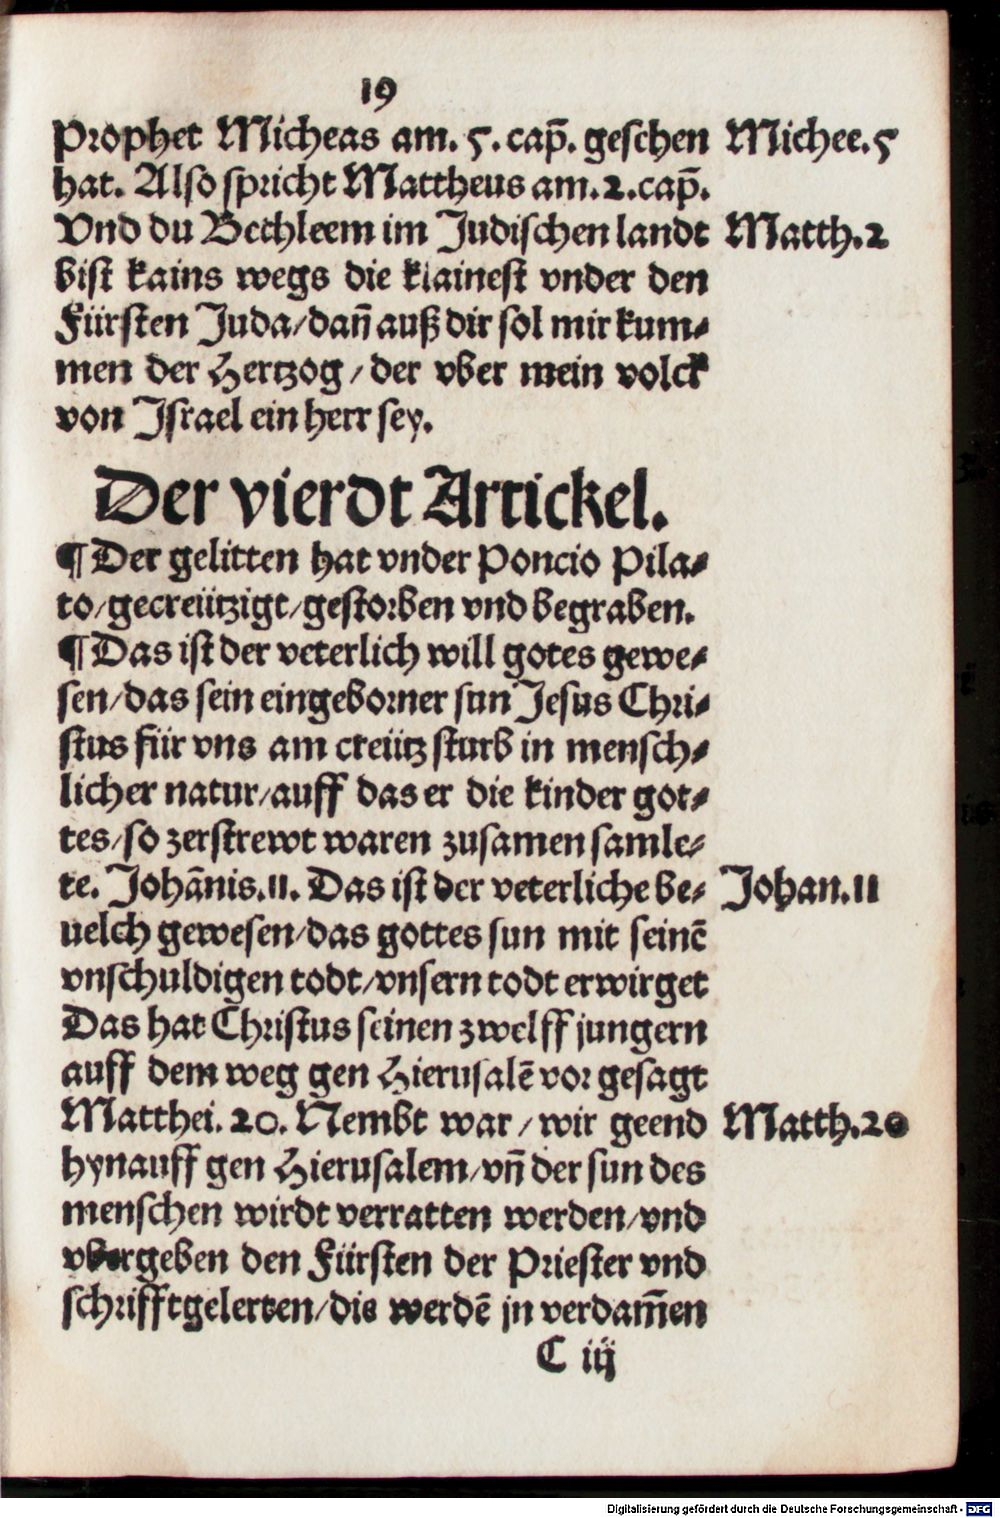 19
Prophet Micheas am. 5. cap̄. geschen Michee. 5
hat. Also spricht Mattheus am. 2. cap̄.
Vnd du Bethleem im Judischen landt Matth. 2
bist kains wegs die klainest vnder den
Fürsten Juda/dañ auß dir sol mir kum⸗
men der Hertzog/der vber mein volck
von Israel ein herr sey.
Der vierdt Artickel.
¶ Der gelitten hat vnder Poncio Pila⸗
to/gecreützigt/gestorben vnd begraben.
¶ Das ist der veterlich will gotes gewe⸗
sen/das sein eingeborner sun Jesus Chri⸗
stus für vns am creütz sturb in mensch⸗
licher natur/auff das er die kinder got⸗
tes/so zerstrewt waren zusamen samle⸗
te. Johānis. 11. Das ist der veterliche be⸗ Johan. 11
uelch gewesen/das gottes sun mit seinē
vnschuldigen todt/vnsern todt erwirget
Das hat Christus seinen zwelff jungern
auff dem weg gen Hierusalē vor gesagt
Matthei. 20. Nembt war/wir geend Matth. 20
hynauff gen Hierusalem/vñ der sun des
menschen wirdt verratten werden/vnd
vbergeben den Fürsten der Priester vnd
schrifftgelerten/die werdē jn verdam̄en
C iij
Digitalisierung gefördert durch die Deutsche Forschungsgemeinschaft - DFG